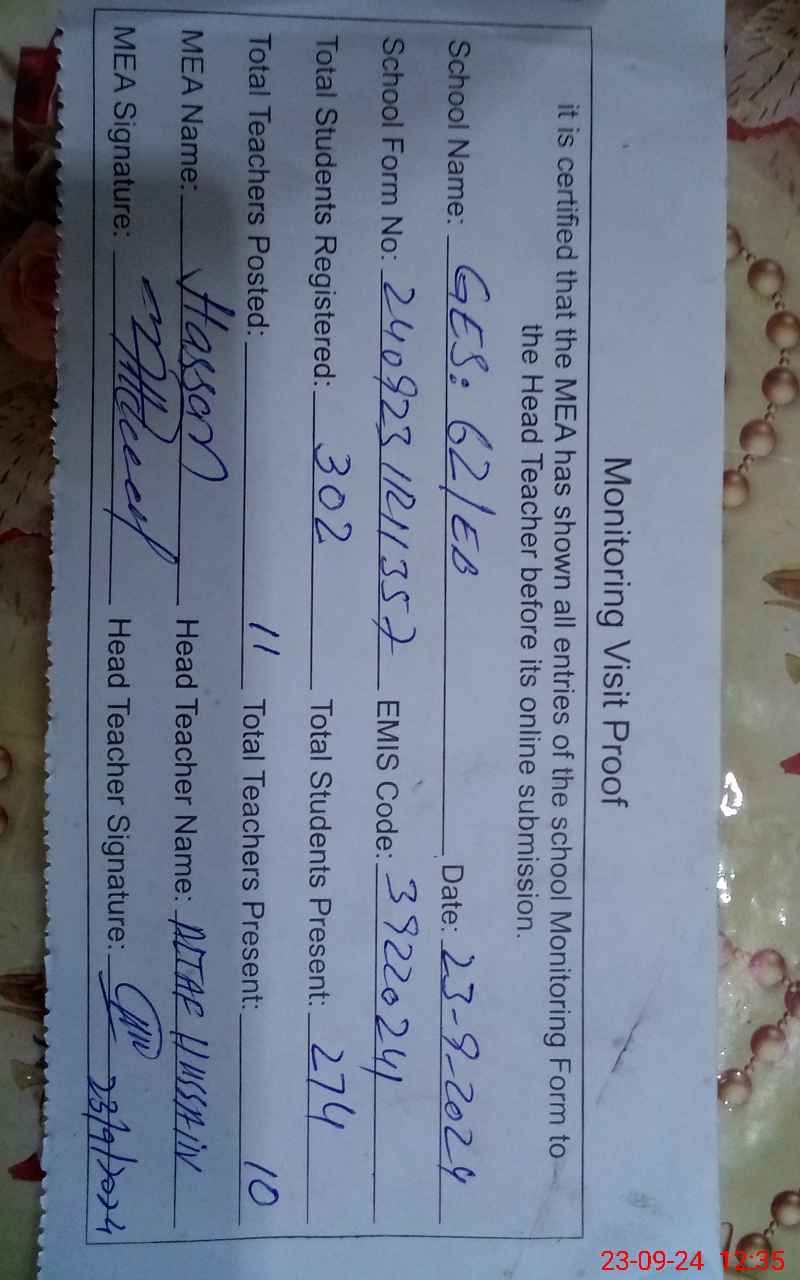 Monitoring Visit Proof
it is certified that the MEA has shown all entries of the school Monitoring Form to
the Head Teacher before its online submission.
School Name: GES: 62/EB Date: 23-9-2024
School Form No: 2409231121357 EMIS Code: 39220241
Total Students Registered: 302 Total Students Present: 274
Total Teachers Posted: 11 Total Teachers Present: 10
MEA Name: Hassan Head Teacher Name: ALTAF HUSSAIN
MEA Signature: Head Teacher Signature: 23/9/2024
23-09-24 12:35